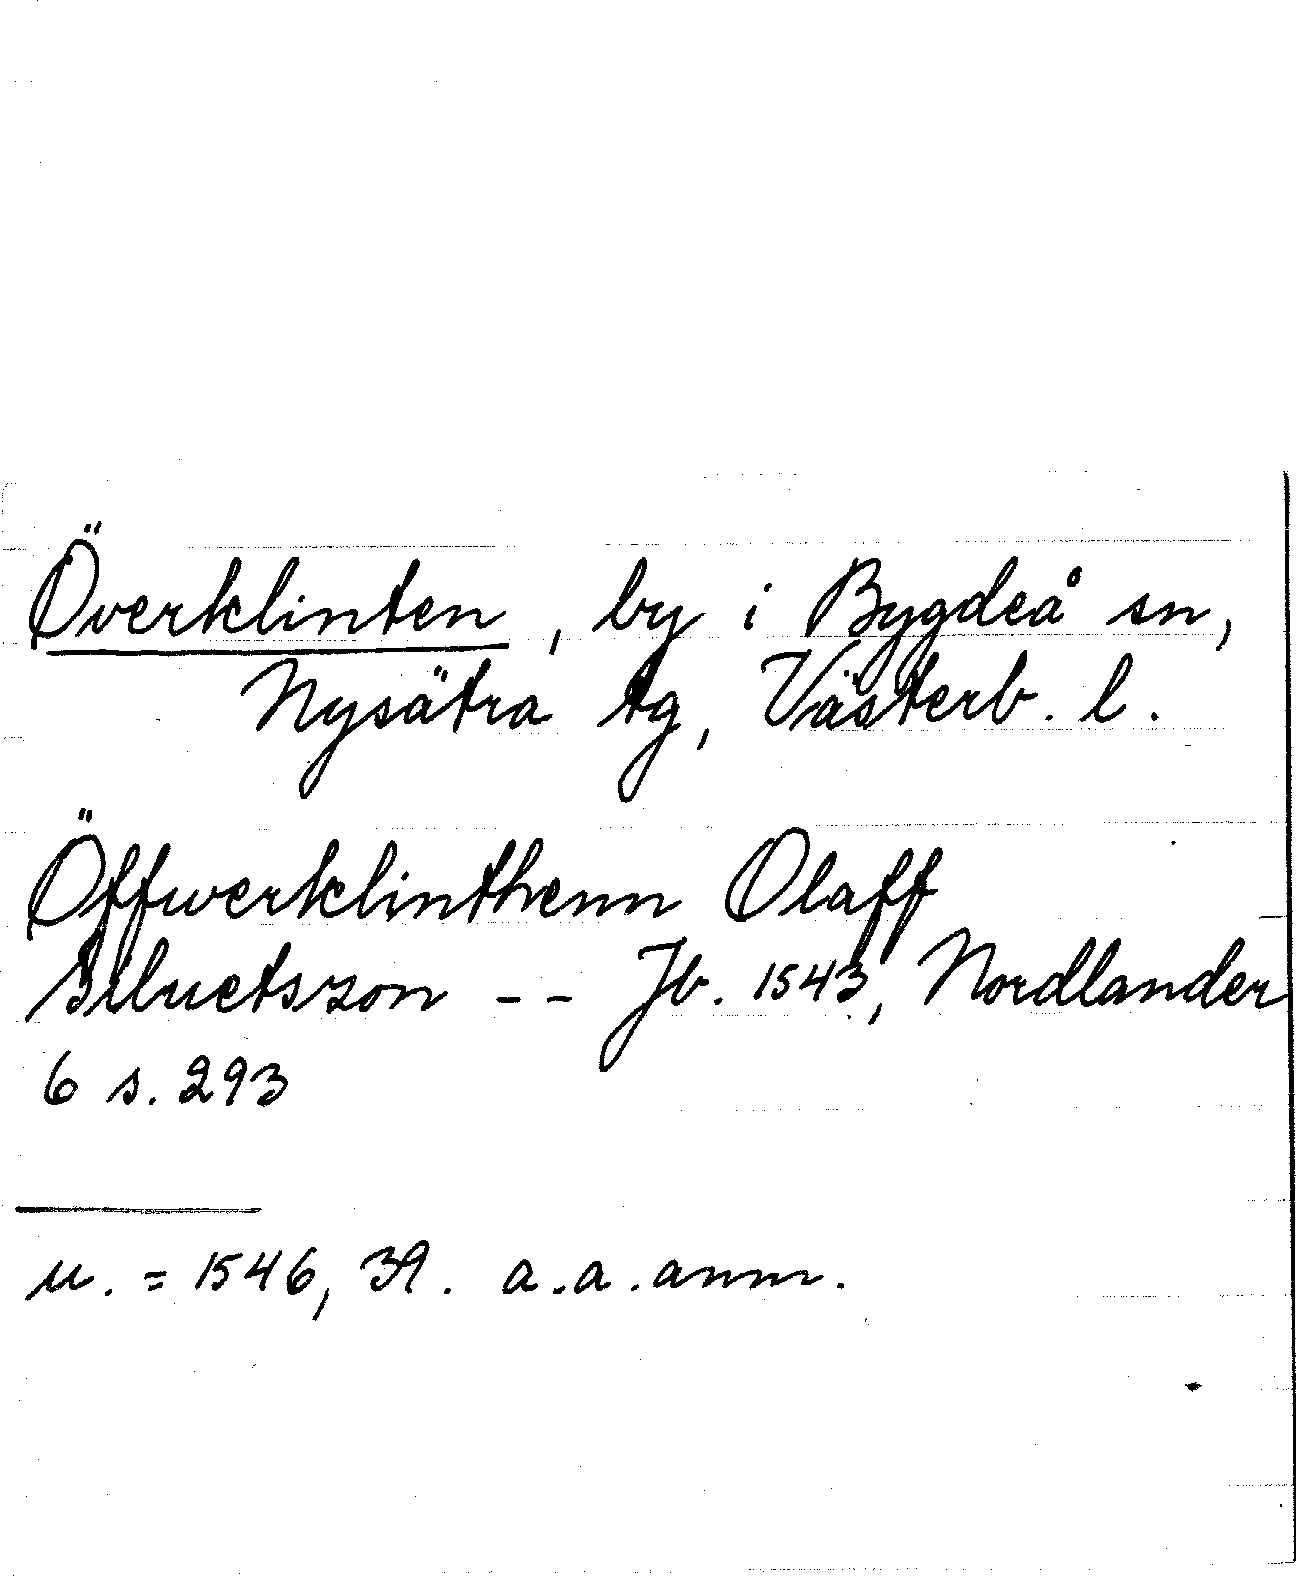 Överklinten, by i Bygdeå sn,
Nysätra tg, Västerb. l.
Öffwerklinthenn Olaff
Jb. 1543, Nordlander
6 s. 293
u. = 1546, 39. a.a. anm.